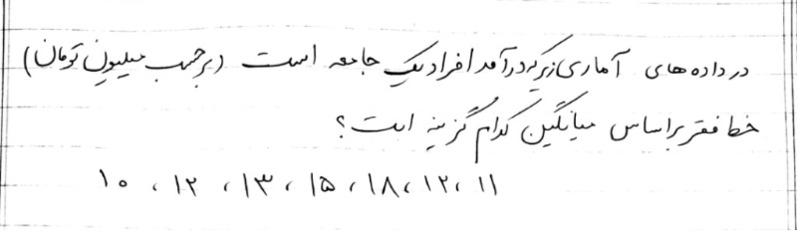 در داده های آماری زیر که درآمد افراد یک جامعه است (برحسب میلیون تومان)
خط فقر براساس میانگین کدام گزینه است؟
۱۰ ، ۱۲ ، ۱۳ ، ۱۵ ، ۱۸ ، ۱۲ ، ۱۱